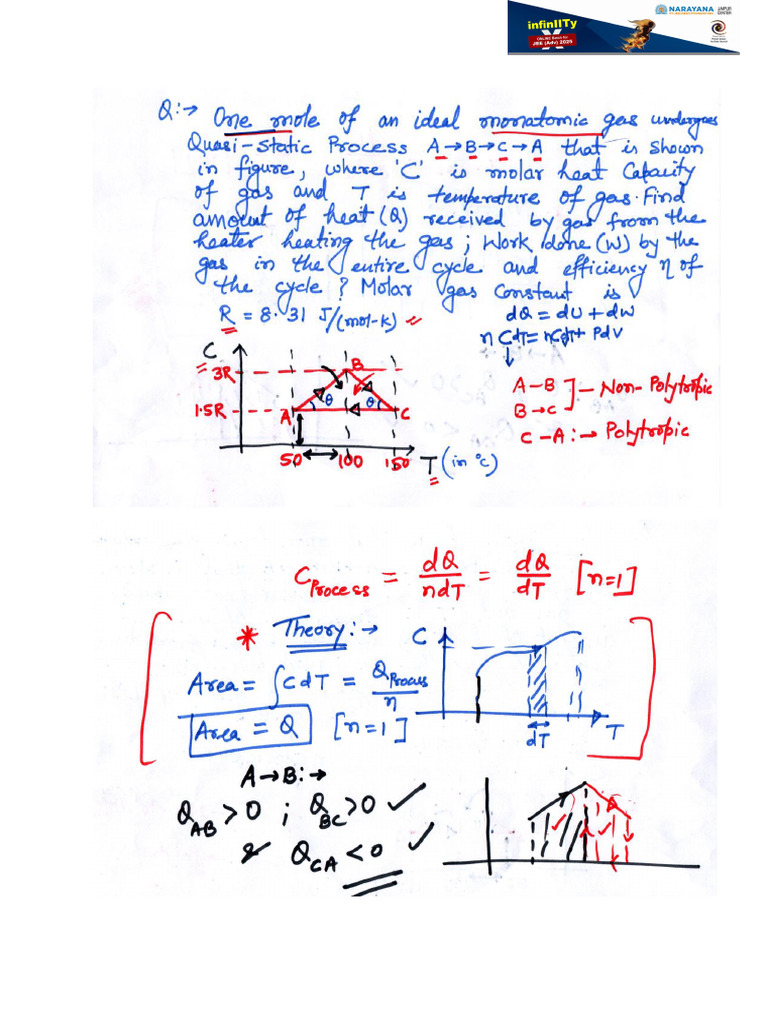 NARAYANA
JAIPUR CENTER
infinIITy
X
ONLINE Batch for
JEE (Adv) 2025
Q:→ One mole of an ideal monatomic gas undergoes
Quasi-Static Process A→B→C→A that is shown
in figure, where 'C' is molar heat Capacity
of gas and T is temperature of gas. Find
amount of heat (Q) received by gas from the
heater heating the gas; Work done (W) by the
gas in the entire cycle and efficiency η of
the cycle? Molar gas Constant is
R = 8.31 J/(mol-K)
dQ = dU + dW
nCdT = nCvdT + PdV
C
3R
B
1.5R
A θ θ C
50 100 150 T (in °C)
A-B
B→C ] - Non-Polytropic
C-A :→ Polytropic
C Process = dQ/ndT = dQ/dT [n=1]
* Theory:→ C
Area = ∫CdT = Q Process/n
Area = Q [n=1]
dT T
A→B:→
Q AB > 0 ; Q BC > 0 ✓
& Q CA < 0 ✓